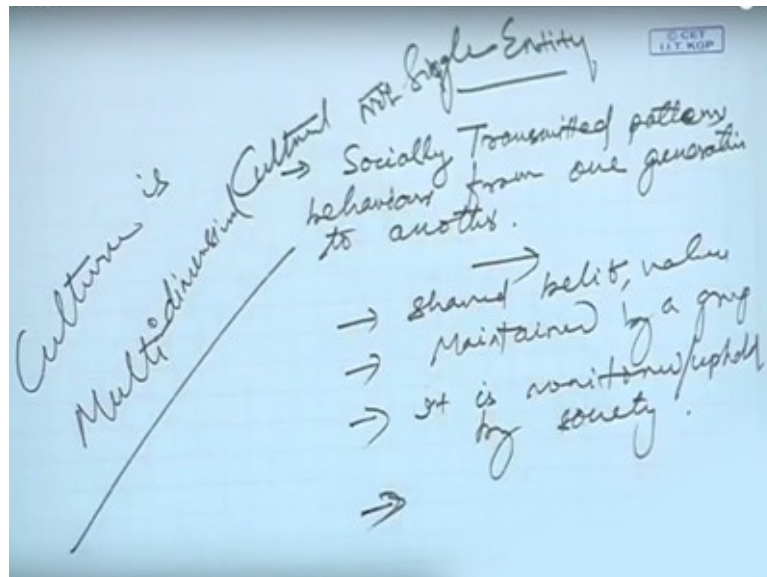 © CET
I.I.T. KGP
Culture is
Multi-dimension
Cultural not Single Entity
→ Socially Transmitted pattern
behaviour from one generation
to another.
→ shared belif, value
→ Maintained by a group
→ It is monitored/uphold
by society.
→